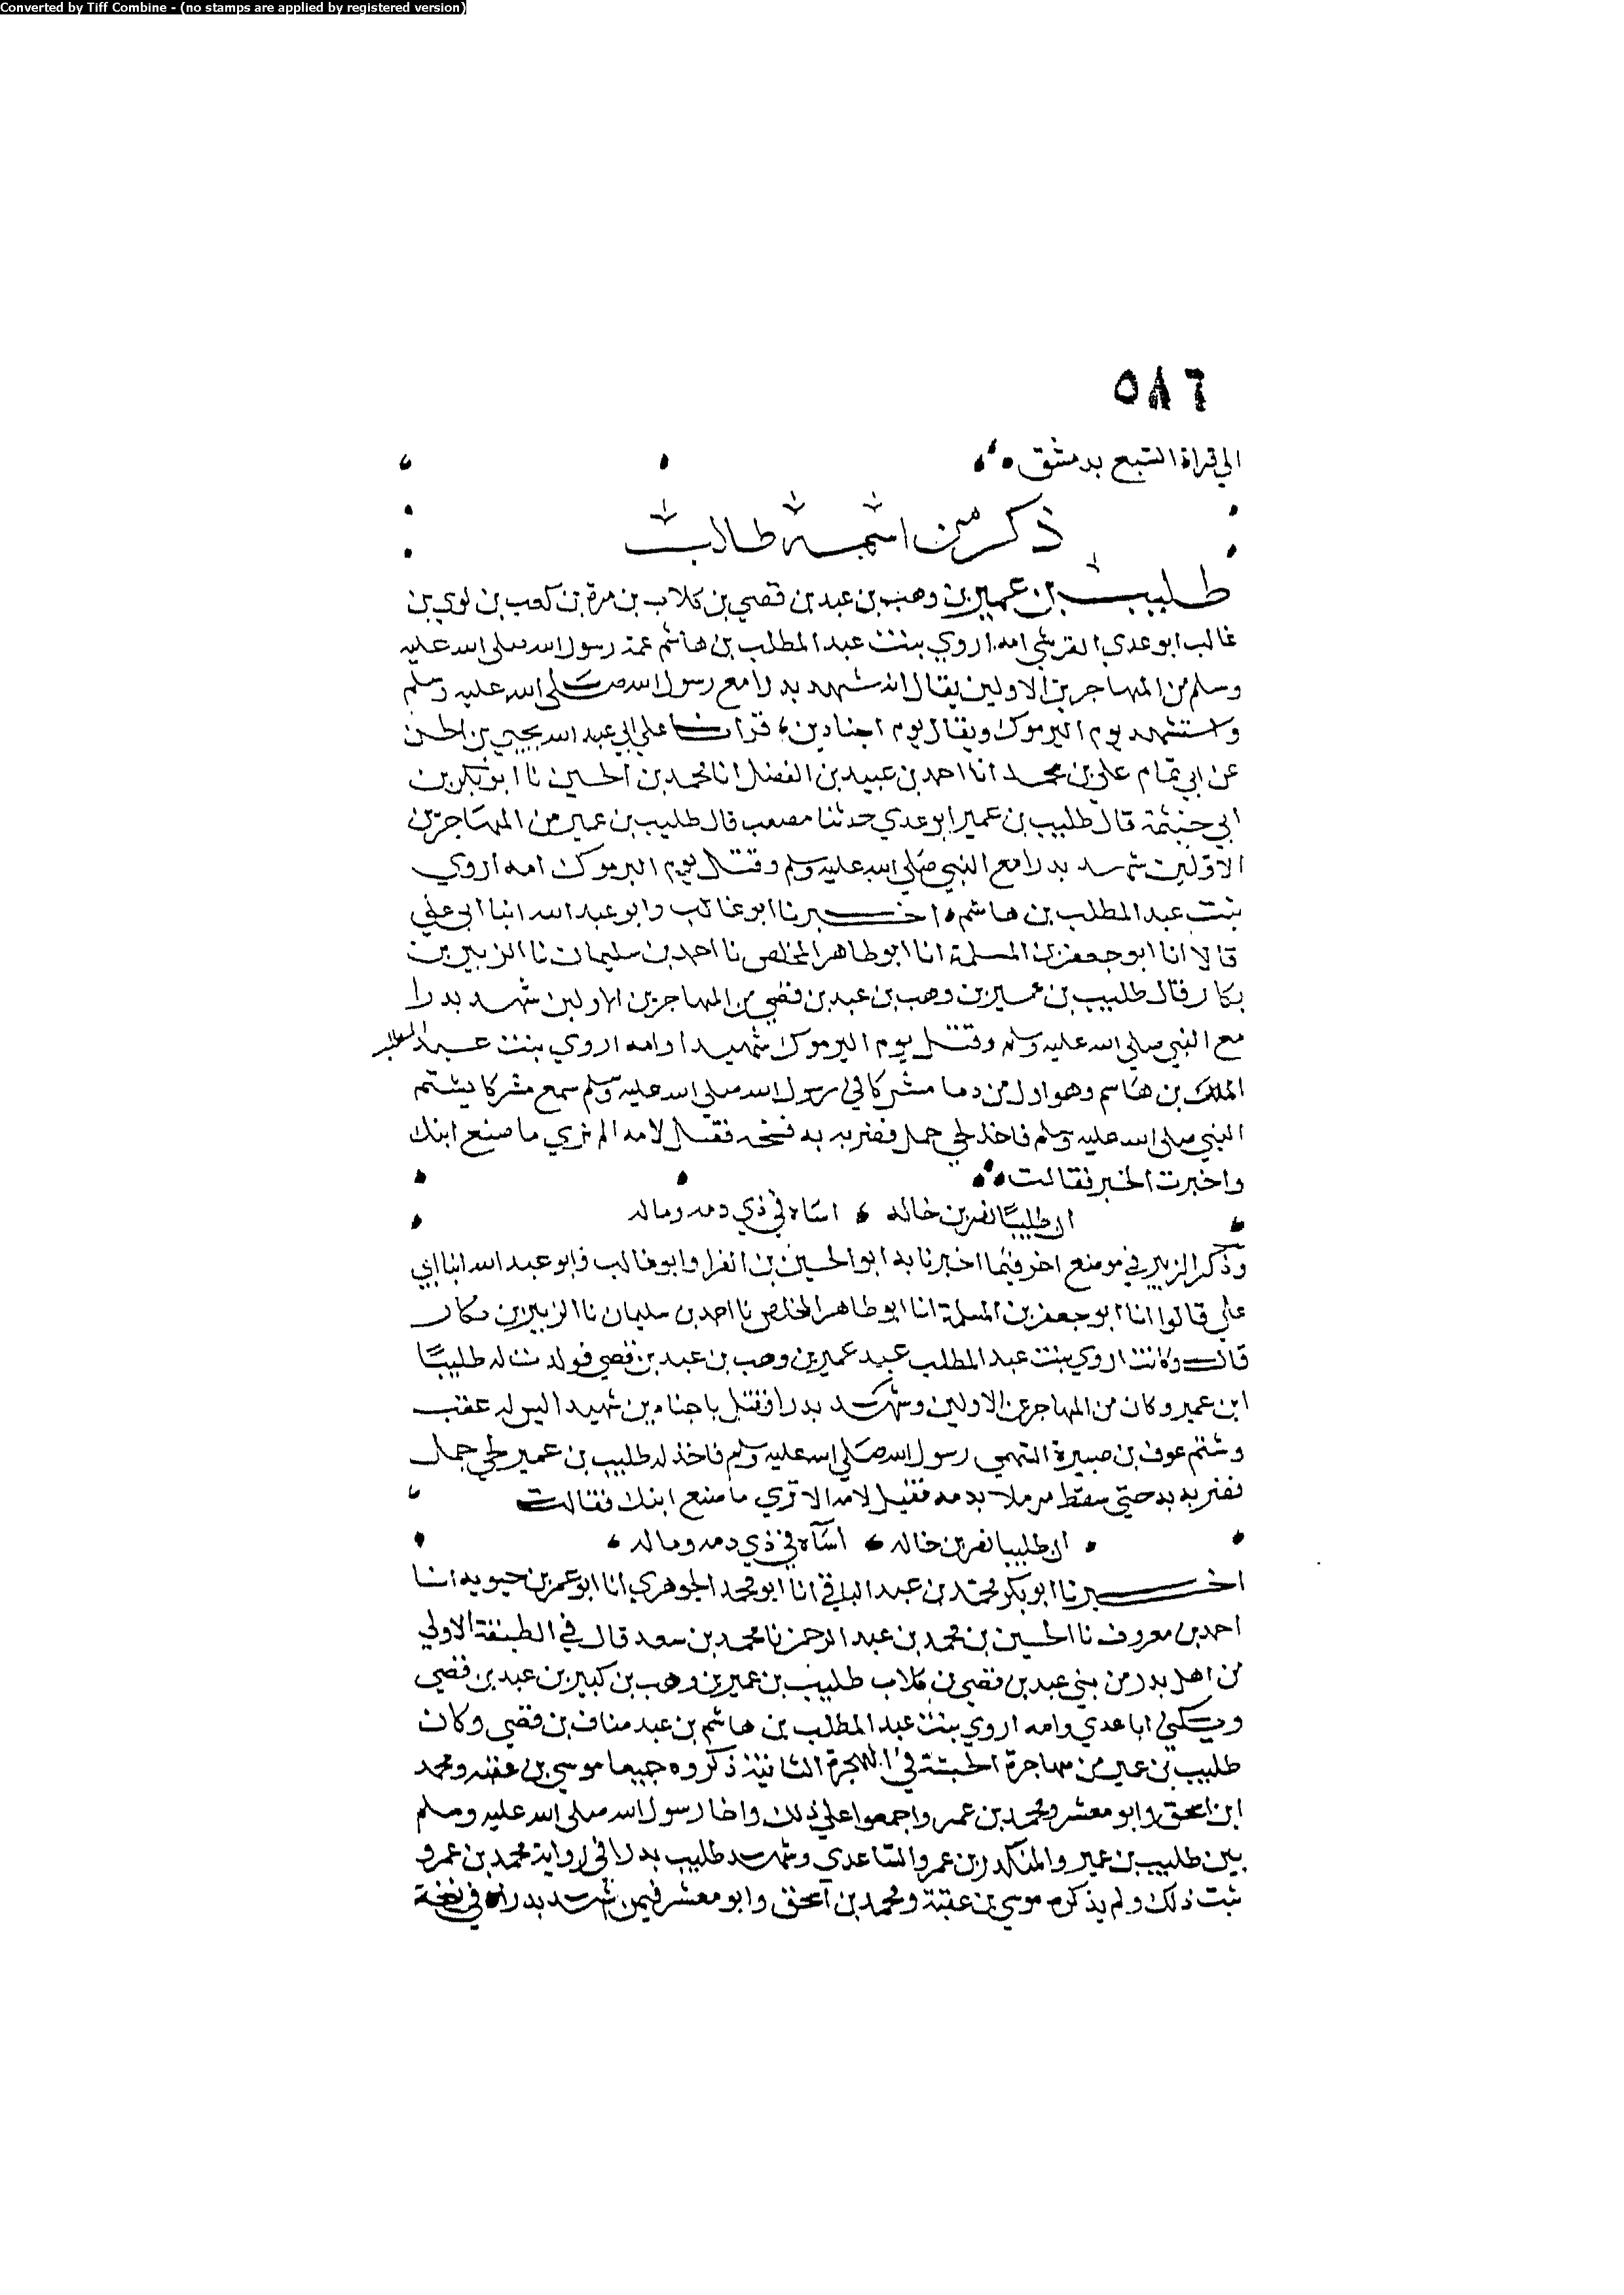 Converted by Tiff Combine - (no stamps are applied by registered version)
٥٨٦
الي قراة السبع بدمشق
ذكر من اسمه طالب
طليب بن عمير بن وهب بن عبد بن قصي بن كلاب بن مرة بن كعب بن لوي بن
غالب ابو عدي القرشي امه اروي بنت عبد المطلب بن هاشم عمة رسول الله صلى الله عليه
وسلم من المهاجرين الاولين يقال انه شهد بدرا مع رسول الله صلى الله عليه وسلم
واستشهد يوم اليرموك ويقال يوم اجنادين، قرات علي ابي عبد الله يحيي بن الحسن
عن ابي تمام علي بن محمد انا احمد بن عبيد بن الفضل انا محمد بن الحسين نا ابو بكر بن
ابي خيثمة قال طليب بن عمير ابو عدي حدثنا مصعب قال طليب بن عمير من المهاجرين
الاولين شهد بدرا مع النبي صلي الله عليه وسلم وقتل يوم اليرموك امه اروي
بنت عبد المطلب بن هاشم اخبرنا ابو غالب وابو عبد الله ابنا ابي علي
قالا انا ابو جعفر بن المسلمة انا ابو طاهر المخلص نا احمد بن سليمان نا الزبير بن
بكار قال طليب بن عمير بن وهب بن عبد بن قصي من المهاجرين الاولين شهد بدرا
مع النبي صلي الله عليه وسلم وقتل يوم اليرموك شهيدا وامه اروي بنت عبد المطلب
الملك بن هاشم وهو اول من دما مشركا في رسول الله صلى الله عليه وسلم سمع مشركا يشتم
النبي صلى الله عليه وسلم فاخذ لحي جمل فضربه به فشجه فقيل لامه الم تري ما صنع ابنك
واخبرت الخبر فقالت
ان طليبًا نصر بن خاله ، اساه في ذي دمه وماله
وذكر الزبير في موضع اخر فيما اخبرنا به ابو الحسين بن الفرا وابو غالب وابو عبد الله ابنا ابي
علي قالوا انا ابو جعفر بن المسلمة انا ابو طاهر المخلص نا احمد بن سليمان نا الزبير بن بكار
قال وكانت اروي بنت عبد المطلب عند عمير بن وهب بن عبد بن قصي فولدت له طليبًا
ابن عمير وكان من المهاجرين الاولين وشهد بدرا فقتل باجنادين شهيدا ليس له عقب
وشتم عوف بن صبيرة السهمي رسول الله صلى الله عليه وسلم فاخذ له طليب بن عمير لحي جمل
فضربه به حتي سقط مرملا بدمه فقيل لامه الا تري ما صنع ابنك فقالت
ان طليبا نصر بن خاله ، اساه في ذي دمه وماله
اخبرنا ابو بكر محمد بن عبد الباقي انا ابو محمد الجوهري انا ابو عمر بن حيويه انا
احمد بن معروف نا الحسين بن محمد بن عبد الرحمن نا محمد بن سعد قال في الطبقة الاولي
من اهل بدر من بني عبد بن قصي بن كلاب طليب بن عمير بن وهب بن كبير بن عبد بن قصي
ويكني ابا عدي وامه اروي بنت عبد المطلب بن هاشم بن عبد مناف بن قصي وكان
طليب بن عمير من مهاجرة الحبشة في الهجرة الثانية ذكروه جميعا موسي بن عقبه ومحمد
ابن اسحق وابو معشر ومحمد بن عمر واجمعوا علي ذلك واخا رسول الله صلى الله عليه وسلم
بين طليب بن عمير والمنكدر بن عمرو الساعدي وشهد طليب بدرا في رواية محمد بن عمرو
ثبت ذلك ولم يذكره موسي بن عقبة ومحمد بن اسحق وابو معشر فيمن شهد بدرا في نسخة